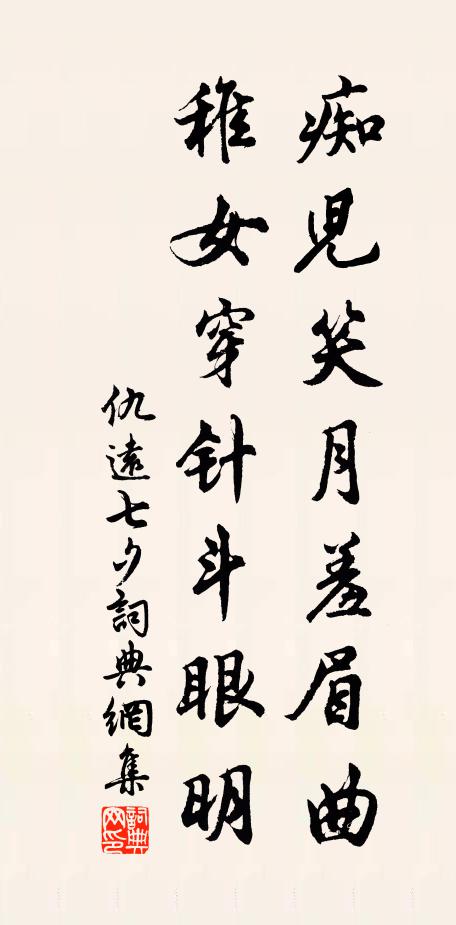 痴児笑月羞眉曲
稚女穿针斗眼明
仇遠七夕詞典網集
詞典网印